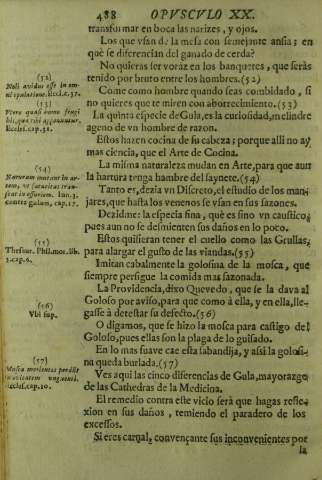 488 OPVSCVLO XX.
transformar en boca las narizes, y ojos.
Los que vsan de la mesa con semejante ansia; en
què se diferencian del ganado de cerda?
No quieras ser voràz en los banquetes, que seràs
tenido por bruto entre los hombres.(52)
Come como hombre quando seas combidado, si
no quieres que te miren con aborrecimiento.(53)
La quinta especie de Gula, es la curiosidad, en el indre
ageno de vn hombre de razon.
Estos hazen cocina de su cabeza; porque alli no ay
mas ciencia, que el Arte de Cocina.
La misma naturaleza mudan en Arte, para que aun
la hartura tenga hambre del saynete.(54)
Tanto es, dezia vn Discreto, el estudio de los man-
jares, que hasta los venenos se vsan en sus sazones.
Dezidme: la especia fina, què es sino vn caustico;
pues aun no se desmienten sus daños en lo poco.
Estos quisieran tener el cuello como las Grullas,
para alargar el gusto de las viandas.(55)
Imitan cabalmente la golosina de la mosca, que
siempre persigue la comida mas sazonada.
La Providencia, dixo Quevedo, que se la dava al
Goloso por aviso, para que como à ella, y en ella, lle-
gasse à detestar su defecto.(56)
O digamos, que se hizo la mosca para castigo del
Goloso, pues ellas son la plaga de lo guisado.
En lo mas suave cae esta sabandija, y assi la golosi-
na queda burlada.(57)
Ves aqui las cinco diferencias de Gula, mayorazgo
de las Cathedras de la Medicina.
El remedio contra este vicio serà que hagas refle-
xion en sus daños, temiendo el paradero de los
excessos.
Si eres carnal, convençante sus inconvenientes por
la
(52)
Noli avidus esse in om-
ni epulatione. Eccl. c.37.
(53)
Vtere quasi homo frugi
his, quæ tibi apponuntur.
Eccles. cap.31.
(54)
Naturam mutant in ar-
tem, vt saturitas tran-
seat in esuriem. Inn.3.
contra gulam, cap.17.
(55)
Thesaur. Phil. mor. lib.
cap.6.
(56)
Vbi sup.
(57)
Muscæ morientes perdunt
suavitatem vnguenti.
Eccles. cap.10.